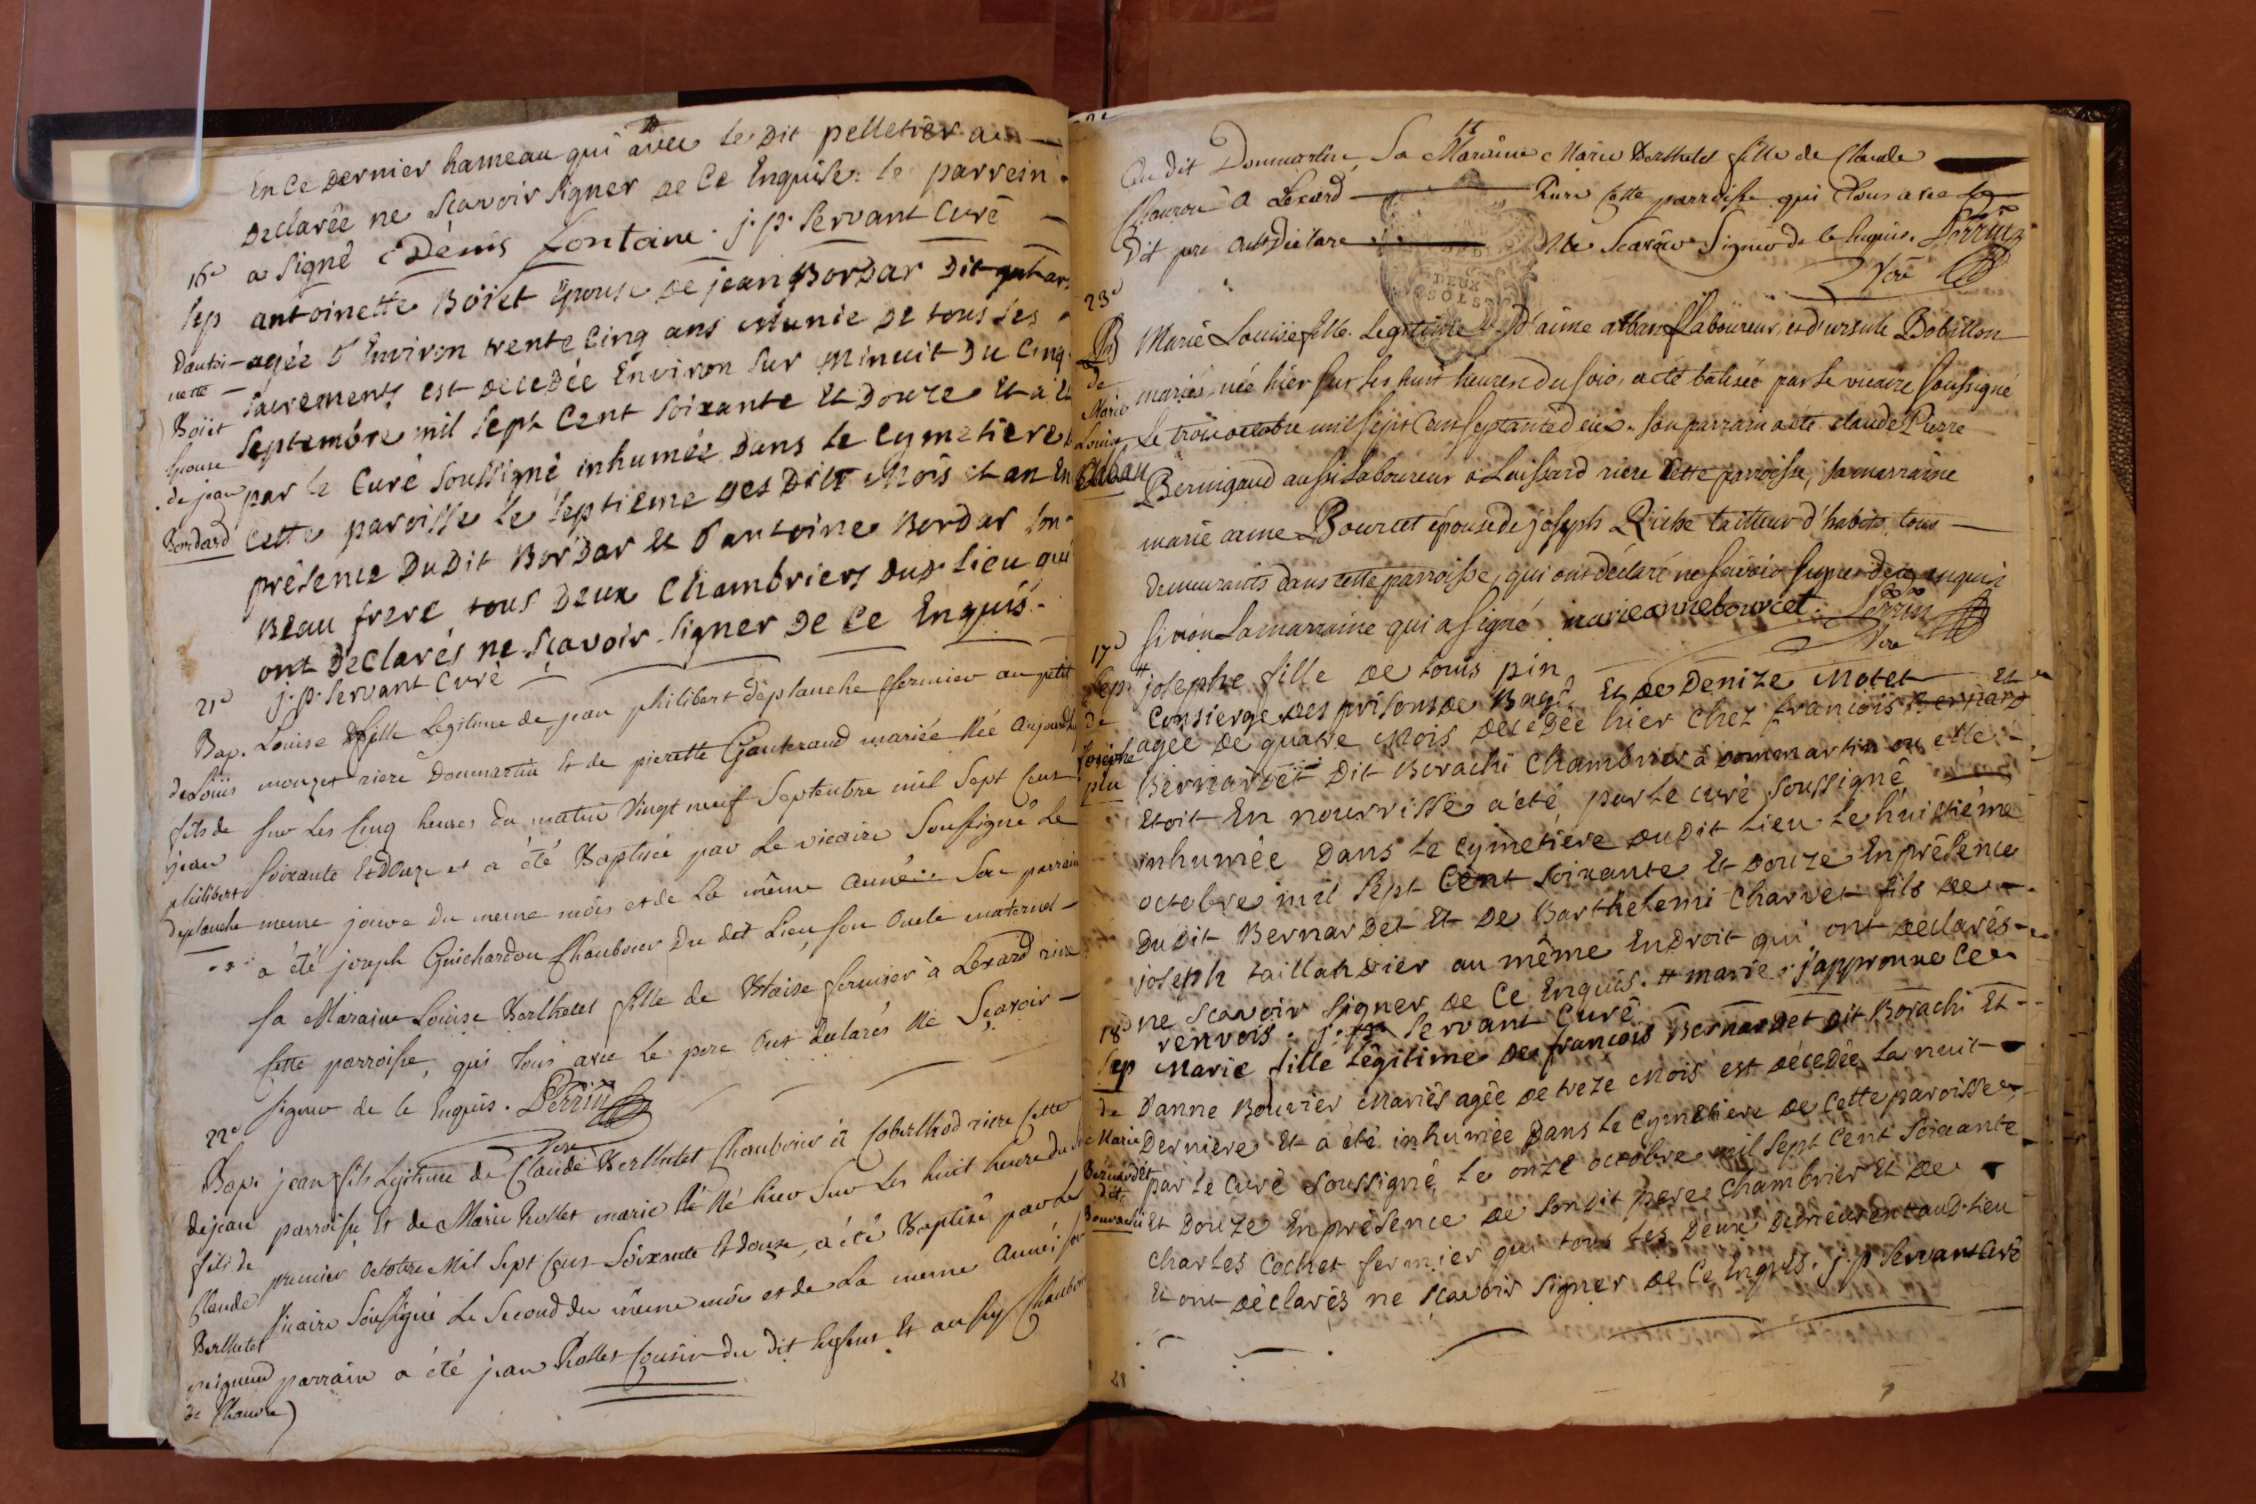 En Ce Dernier hameau qui avec le Dit pelletier a
Declarée ne sçavoir signer de Ce Enquise. le parrein
a signé Denis fontaine. j. p. Servant Curé
16e
Sep
Dantoi-
nette
Boiiet
Epouse
de jean
Bordard
antoinette Boiiet Epouse de jean Bordar Dit
agée d'Environ trente Cinq ans Munie De tous les
sacrements est decedée Environ sur Minuit Du Cinq
Septembre mil sept Cent soixante Et Douze Et a Eté
par le Curé soussigné inhumée Dans le Cymetiere
Cette paroisse le septieme Des Dits Mois et an En
présence Du Dit Bordar Et d'antoine Bordar son
Beau frere tous Deux Chambriers Dud. lieu qui
ont Declarés ne sçavoir signer De Ce Enquis.
j. p. Servant Curé
21e
Bap.
de Loüis
fils de
jean
philibert
Deplanche
Louise fille Legitime de jean philibert Deplanche fermier au petit
mouget riere Dommartin Et de pierette Gauteraud mariée Né aujourdh
sur Les Cinq heures du matin Vingt neuf Septembre mil Sept Cent
soixante Et Douze et a été Baptisée par Le vicaire Soussigné Le
meme jour Du meme mois et de La même année Son parrain
a été joseph Guichardon Chambrier Du dit Lieu son Oncle maternel
sa Maraine Louise Berthelet fille de Blaise fermier à Lexard riere
Cette parroisse, qui tous avec Le pere Ont Declarés Ne Sçavoir
signer de Ce Enquis. Perrin
Vire
22e
Bap.
de jean
fils de
Claude
Berthelet
de Chaure)
jean fils Legitime de Claude Berthelet Chambrier à Coberthod riere Cette
parroisse Et de Marie Rollet marié Né hier Sur Les huit heure du
premier Octobre Mil Sept Cent Soixante Et douze, a été Baptisé par Le
Vicaire Soussigné Le Second du même mois et de La meme année, son
parrain a été jean Rollet Cousin du dit Enfant Et aussy Chambrier
Du dit Dommartin, Sa Maraine Marie Berthelet fille de Claude
à Lexard Riere Cette parroisse qui tous avec le
Dit pere Ont Déclaré Ne Scavoir Signer de Ce Enquis. Perrin
Vire
DEUX
SOLS
23e
Bap
de
Marie
Louise
Alban
Marie Louise fille Legitime d'aimé alban Laboureur et d'ursule Bobillon
mariés, née hier sur les huit heures du soir, a été batisée par le vicaire soussigné
Le trois octobre mil sept Cent septante deux. son parrain a été claude Pierre
Bernigaud aussi Laboureur à Luissard riere cette parroisse, sa marraine
marie anne Bourcet épouse de joseph Riche tailleur d'habits, tous
demeurants dans cette parroisse, qui ont déclaré ne sçavoir signer de ce enquis
sinon La marraine qui a signé marieannebourcet. Perrin
Vire
17e
Sep
de
Josephe
pin
# josephe fille de Louis pin
Consierge Des prisons de Bagé Et De Denize Motet Et
agée De quatre Mois Decedée hier Chez francois Bernard
Bernardet Dit Borachi Chambrier à Dommartin ou elle
Etoit En nourrisse a été par le curé soussigné
inhumée Dans le Cymetiere Du Dit lieu le huitiéme
octobre mil sept Cent soixante Et Douze En présence
Du Dit Bernardet Et De Barthelemi Charvet fils De
joseph taillandier au même Endroit qui ont Declarés
ne sçavoir signer De Ce Enquis. # marie. j'approuve Ce
renvois. j. p. Servant Curé
18e
Sep
de
Marie
Bernardet
dit
Bourachi
Marie fille Légitime De francois Bernardet Dit Borachi Et
D'anne Bouvier Mariés agée De treze Mois est décedée la nuit
Derniere Et a été inhumée Dans le Cymetiere De Cette paroisse
par le Curé soussigné le onze octobre mil sept Cent soixante
Et Douze En présence De son Dit pere Chambrier Et De
Charles Cochet fermier qui tous les Deux Demeurent aud. lieu
Et ont déclarés ne sçavoir signer De Ce Enquis. j. p. Servant Curé
28